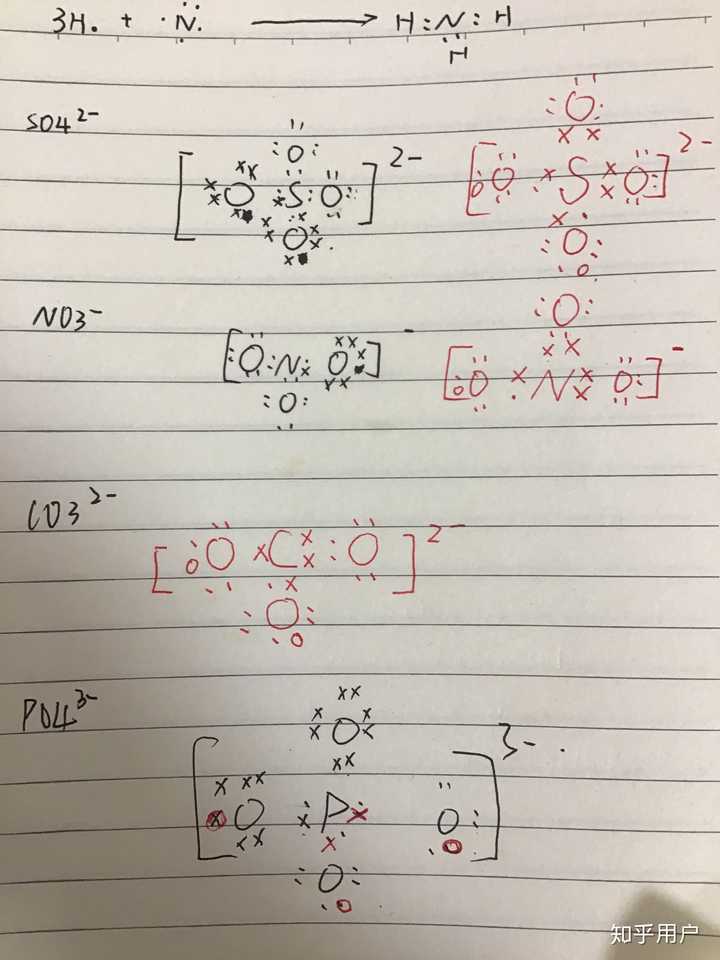 3H· + ·N· → H:N:H
H
SO4 2-
O
[O S O] 2-
O
O
[O S O] 2-
O
NO3 -
[O N O] -
O
O
[O N O] -
CO3 2-
[O C O] 2-
O
PO4 3-
O
[O P O] 3-
O
知乎用户